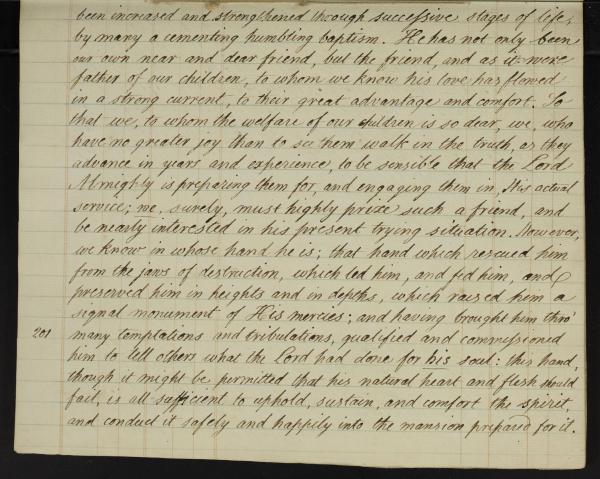 been increased and strengthened through successive stages of life,
by many a cementing humbling baptism. He has not only been
our own near and dear friend, but the friend, and as it were
father of our children, to whom we know his love has flowed
in a strong current, to their great advantage and comfort. So
that we, to whom the welfare of our children is so dear, we, who
have no greater joy than to see them walk in the truth, as they
advance in years and experience, to be sensible that the Lord
Almighty is preparing them for, and engaging them in, His actual
service; we, surely, must highly prize such a friend, and
be nearly interested in his present trying situation. However,
we know in whose hand he is; that hand which rescued him
from the jaws of destruction, which led him, and fed him, and
preserved him in heights and in depths, which raised him a
signal monument of His mercies; and having brought him thro'
201 many temptations and tribulations, qualified and commissioned
him to tell others what the Lord had done for his soul: this hand,
though it might be permitted that his natural heart and flesh should
fail, is all sufficient to uphold, sustain, and comfort the spirit,
and conduct it safely and happily into the mansion prepared for it.